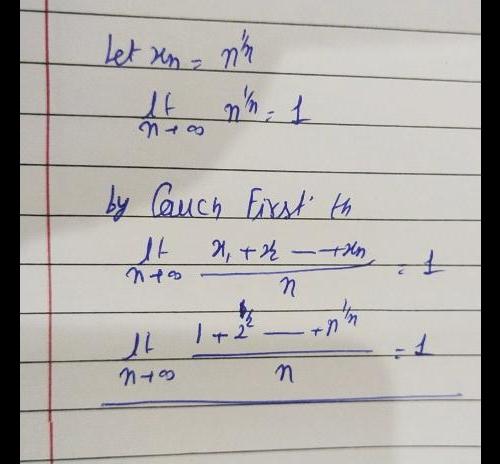 Let xn = n^1/n
lt n→∞ n^1/n = 1
by Cauch First th
lt n→∞ x1 + x2 — +xn / n = 1
lt n→∞ 1 + 2^1/2 — + n^1/n / n = 1